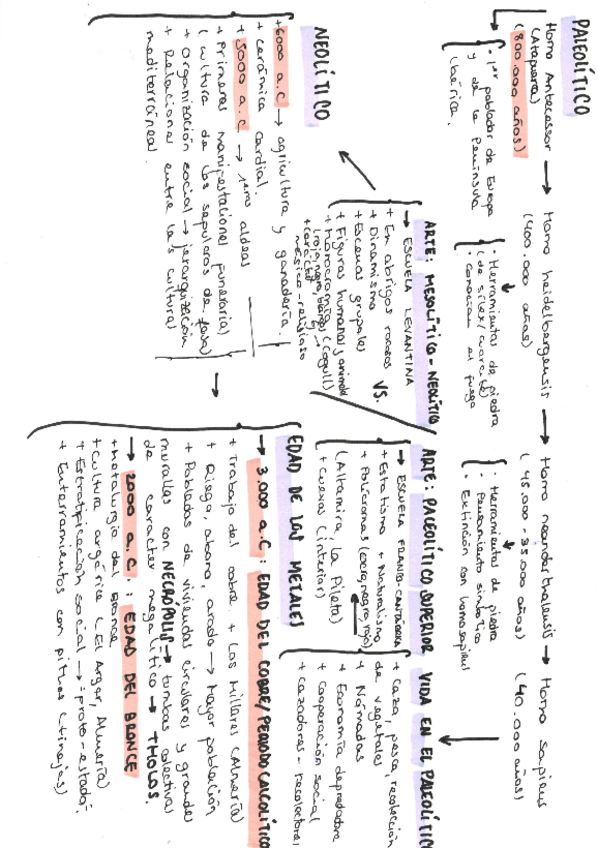 PALEOLÍTICO
Homo Antecessor → Homo heidelbergensis → Homo neandertalensis → Homo sapiens
(Atapuerca)
(800.000 años)
(400.000 años)
(45.000 - 35.000 años)
(40.000 años)
· 1er poblador de Europa
y de la Península
Ibérica.
· Herramientas de piedra
(de sílex/cuarcita)
· Conocían el fuego
· Herramientas de piedra
· Pensamiento simbólico
· Extinción con homo sapiens
VIDA EN EL PALEOLÍTICO
+ Caza, pesca, recolección
de vegetales
+ Nómadas
+ Economía depredadora
+ Cooperación social
+ Cazadores - recolectores
ARTE: PALEOLÍTICO SUPERIOR
→ ESCUELA FRANCO-CANTÁBRICA
+ Estatismo + Naturalismo
+ Polícromas (ocre, negro, rojo)
(Altamira, la Pileta)
+ Cuevas (interior)
VS.
ARTE: MESOLÍTICO - NEOLÍTICO
→ ESCUELA LEVANTINA
+ En abrigos rocosos
+ Dinamismo
+ Escenas grupales
+ Figuras humanas y animales
+ Monocromía
(rojo, negro, blanco) (Cogull)
+ Carácter
mágico-religioso
NEOLÍTICO
+ 6000 a.C → agricultura y ganadería.
+ cerámica cardial.
+ 5000 a.C → 1eras aldeas
+ Primeras manifestaciones funerarias
(cultura de los sepulcros de fosa)
+ Organización social → jerarquización
+ Relaciones entre las culturas
mediterráneas.
EDAD DE LOS METALES
→ 3.000 a.C: EDAD DEL COBRE/PERIODO CALCOLÍTICO
+ Trabajo del cobre. + Los Millares (Almería)
+ Riego, abono, arado → Mayor población
+ Poblados de viviendas circulares y grandes
murallas con NECRÓPOLIS → tumbas colectivas
de carácter megalítico → THOLOS.
→ 2000 a.C.: EDAD DEL BRONCE
+ Metalurgia del bronce
+ Cultura argárica (El Argar, Almería)
+ Estratificación social → "proto-estado"
+ Enterramientos con pithos (tinajas)